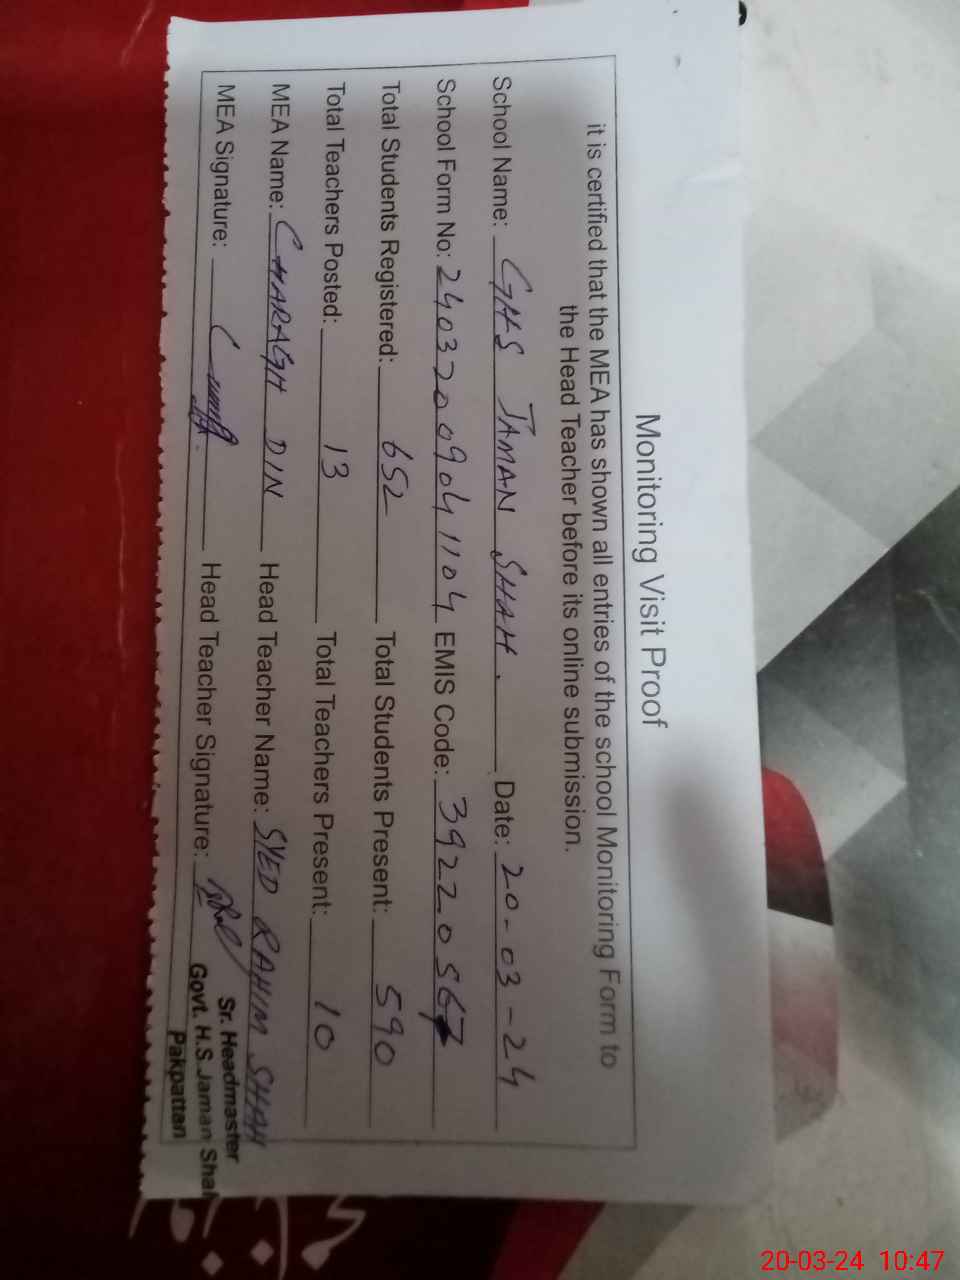 Monitoring Visit Proof
it is certified that the MEA has shown all entries of the school Monitoring Form to
the Head Teacher before its online submission.
School Name: GHS JAMAN SHAH. Date: 20-03-24
School Form No: 24032009041104 EMIS Code: 39220567
Total Students Registered: 652 Total Students Present: 590
Total Teachers Posted: 13 Total Teachers Present: 10
MEA Name: CHARAGH DIN Head Teacher Name: SYED RAHIM SHAH
MEA Signature: Head Teacher Signature:
Sr. Headmaster
Govt. H.S. Jaman Shah
Pakpattan
20-03-24 10:47